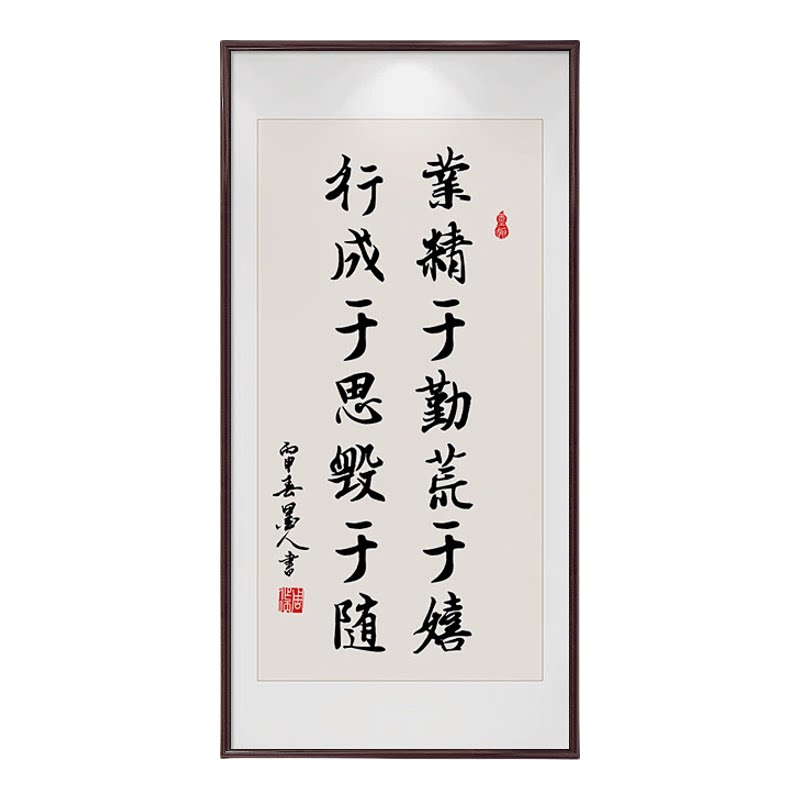 業精于勤荒于嬉
行成于思毁于随
丙申春墨人書